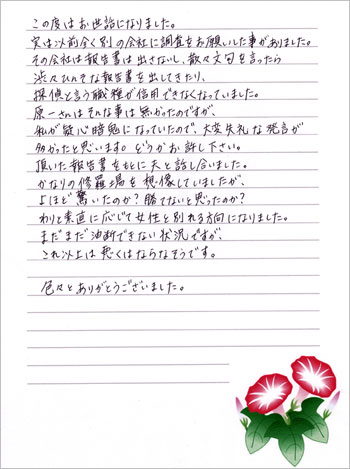 この度はお世話になりました。
実は以前全く別の会社に調査をお願いした事がありました。
その会社は報告書は出さないし、散々文句を言ったら
渋々ひのそな報告書を出してきたり、
探偵と言う職種が信用できなくなっていました。
原一さんはそんな事は無かったのですが、
私が疑心暗鬼になっていたので、大変失礼な発言が
多かったと思います。どうかお許し下さい。
頂いた報告書をもとに夫と話し合いました。
かなりの修羅場を想像していましたが、
よほど驚いたのか？勝てないと思ったのか？
わりと素直に応じて女性と別れる方向になりました。
まだまだ油断できない状況ですが、
これ以上は悪くはならなそうです。
色々とありがとうございました。